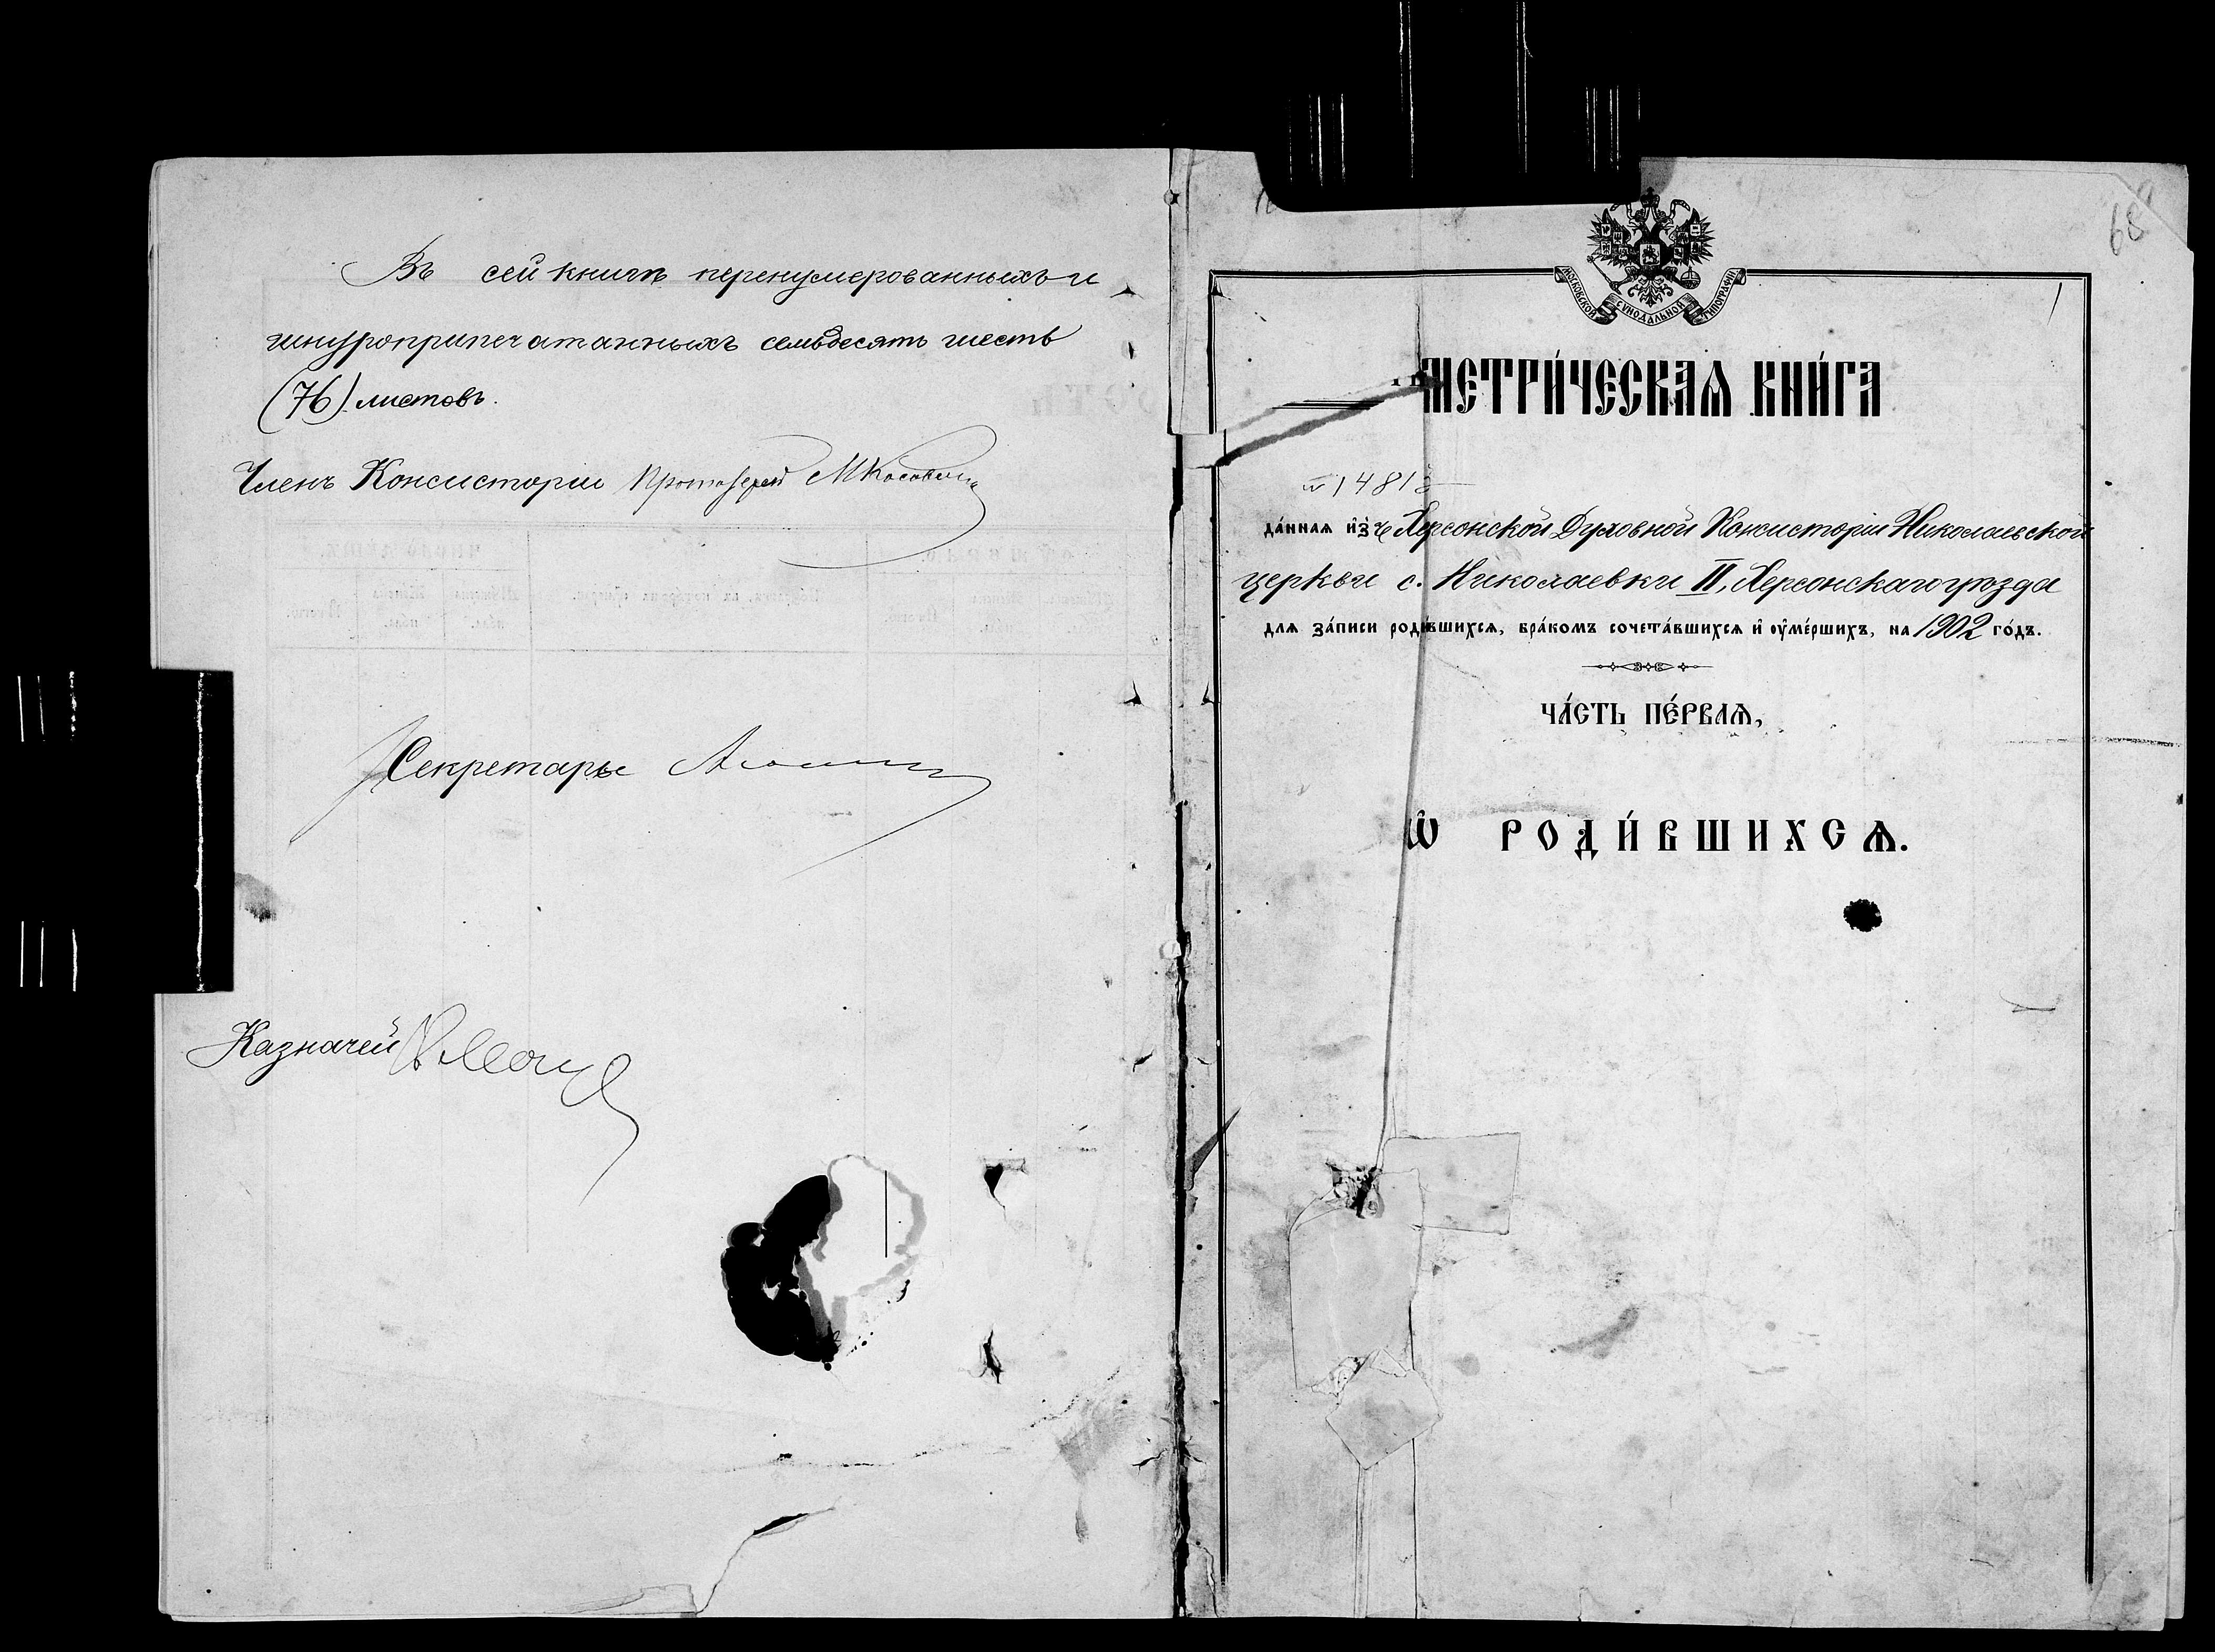 Въ сей книгѣ перенумерованныхъ и
шнуроприпечатанныхъ семьдесятъ шесть
(76) листовъ.
Членъ Консисторіи Протоіерей
Секретарь
Казначей
68
1
МОСКОВСКОЙ СѴНОДАЛЬНОЙ ТИПОГРАФІИ
МЕТРИ́ЧЕСКАѦ КНИ́ГА
да́ннаѧ и҆зъ Херсонской Духовной Консисторіи Николаевской
церкви с. Николаевки II, Херсонскаго уѣзда
длѧ за́писи роди́вшихсѧ, бра́комъ сочета́вшихсѧ и҆ ᲂу҆ме́ршихъ, на 1902 го́дъ.
ЧА́СТЬ ПЕ́РВАѦ,
Ѡ҆ РОДИ́ВШИХСѦ.